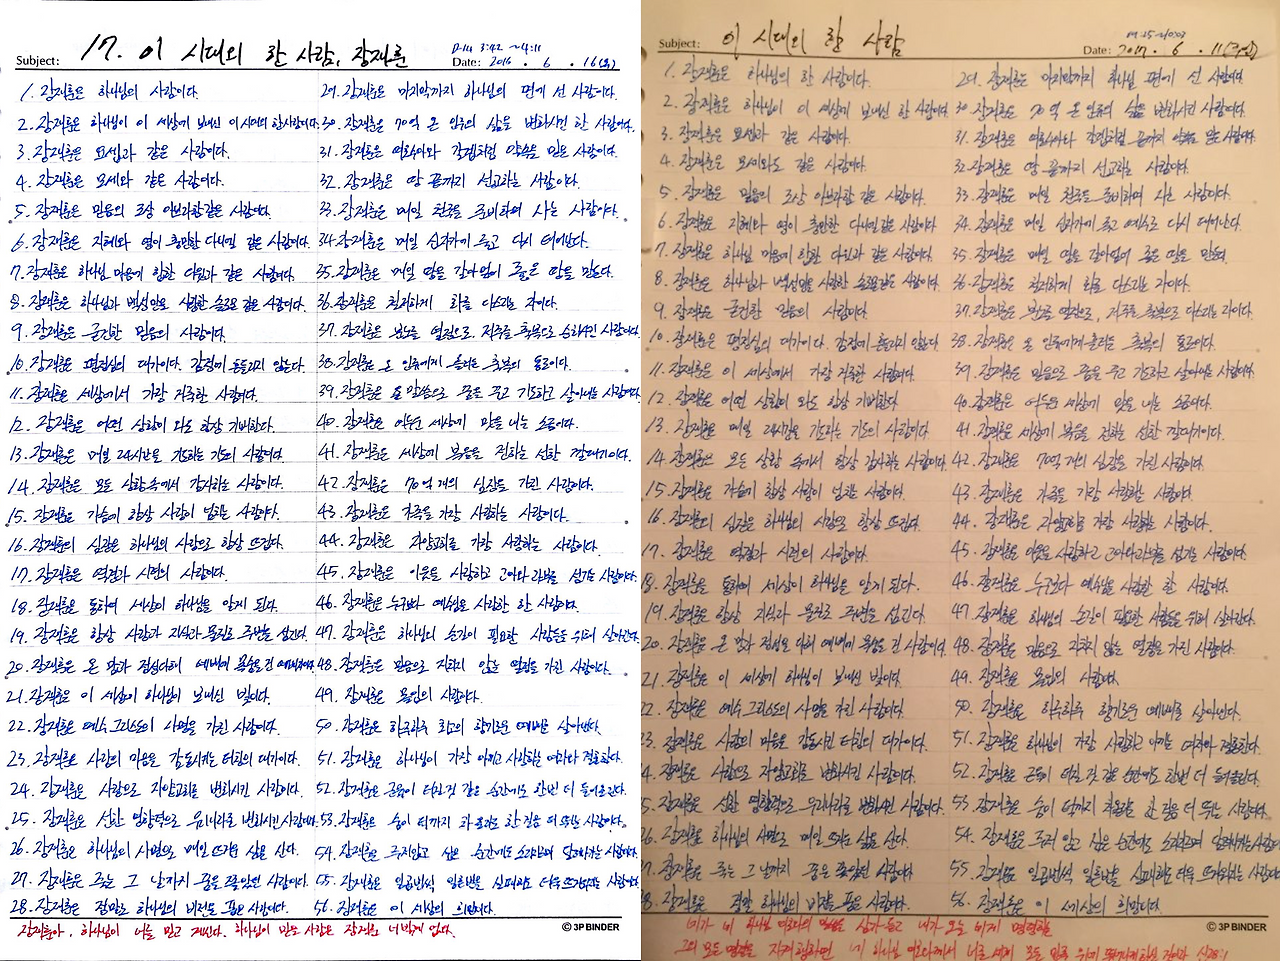 Subject: 17. 이 시대의 한 사람, 장재훈
D-14 3:42 ~4:11
Date: 2016 . 6 . 16(목)
1. 장재훈은 하나님의 사람이다.
2. 장재훈은 하나님이 이 세상에 보내신 이 시대의 한사람이다.
3. 장재훈은 요셉과 같은 사람이다.
4. 장재훈은 모세와 같은 사람이다.
5. 장재훈은 믿음의 조상 아브라함같은 사람이다.
6. 장재훈은 지혜와 영이 충만한 다니엘 같은 사람이다.
7. 장재훈은 하나님 마음에 합한 다윗과 같은 사람이다.
8. 장재훈은 하나님과 백성만을 사랑한 솔로몬 같은 사람이다.
9. 장재훈은 굳건한 믿음의 사람이다.
10. 장재훈은 평정심의 대가이다. 감정에 흔들리지 않는다.
11. 장재훈은 세상에서 가장 거룩한 사람이다.
12. 장재훈은 어떤 상황이 와도 항상 기뻐한다.
13. 장재훈은 매일 24시간을 기도하는 기도의 사람이다.
14. 장재훈은 모든 상황속에서 감사하는 사람이다.
15. 장재훈은 가슴에 항상 사랑이 넘치는 사람이다.
16. 장재훈의 심장은 하나님의 사랑으로 항상 뜨겁다.
17. 장재훈은 열정과 시련의 사람이다.
18. 장재훈을 통하여 세상이 하나님을 알게 된다.
19. 장재훈은 항상 사랑과 지식과 물질로 주변을 섬긴다.
20. 장재훈은 온 맘과 정성다해 예배에 목숨을 건
21. 장재훈은 이 세상에 하나님이 보내신 빛이다.
22. 장재훈은 예수 그리스도의 사명을 가진 사람이다.
23. 장재훈은 사람의 마음을 감동시키는 대화의 대가이다.
24. 장재훈은 사랑으로 자양교회를 변화시킨 사람이다.
25. 장재훈은 선한 영향력으로 우리나라를 변화시킨 사람이다.
26. 장재훈은 하나님의 사명으로 매일 뜨거운 삶을 산다.
27. 장재훈은 죽는 그 날까지 꿈을 좇았던 사람이다.
28. 장재훈은 정말로 하나님의 비전을 품은 사람이다.
29. 장재훈은 마지막까지 하나님의 편에 선 사람이다.
30. 장재훈은 70억 온 인류의 삶을 변화시킨 한 사람이다.
31. 장재훈은 여호수아와 갈렙처럼 약속을 믿은 사람이다.
32. 장재훈은 땅 끝까지 선교하는 사람이다.
33. 장재훈은 매일 천국을 준비하며 사는 사람이다.
34. 장재훈은 매일 십자가에 죽고 다시 태어난다.
35. 장재훈은 매일 땅을 갈아엎어 좋은 땅을 만든다.
36. 장재훈은 철저하게 화를 다스리는 자이다.
37. 장재훈은 분노를 열정으로, 저주를 축복으로 승화시킨 사람이다.
38. 장재훈은 온 인류에게 흘러가는 축복의 통로이다.
39. 장재훈은 말씀으로 꿈을 꾸고 기도하고 살아내는 사람이다.
40. 장재훈은 어두운 세상에 맛을 내는 소금이다.
41. 장재훈은 세상에 복음을 전하는 선한 깔대기이다.
42. 장재훈은 70억 개의 심장을 가진 사람이다.
43. 장재훈은 가족을 가장 사랑하는 사람이다.
44. 장재훈은 자양교회를 가장 사랑하는 사람이다.
45. 장재훈은 이웃을 사랑하고 고아와 과부를 섬기는 사람이다.
46. 장재훈은 누구보다 예수님을 사랑한 한 사람이다.
47. 장재훈은 하나님의 손길이 필요한 사람들을 위해 살아간다.
48. 장재훈은 믿음으로 지치지 않는 열정을 가진 사람이다.
49. 장재훈은 몰입의 사람이다.
50. 장재훈은 하루하루 최고의 향기로운 예배를 살아낸다.
51. 장재훈은 하나님이 가장 아끼고 사랑하는 여자와 결혼한다.
52. 장재훈은 근육이 터질 것 같은 순간에도 한번 더 들어올린다.
53. 장재훈은 숨이 터까지 차올라도 한 걸음 더 뛰는 사람이다.
54. 장재훈은 죽지않고 싶은 순간에도 소리치며 달려가는 사람이다.
55. 장재훈은 일곱번씩 일흔번을 실패해도 더욱 뜨거워지는 사람이다.
56. 장재훈은 이 세상의 희망이다.
장재훈아, 하나님이 너를 믿고 계신다. 하나님이 믿는 사람은 장재훈 너밖에 없다.
© 3P BINDER
Subject: 이 시대의 한 사람
Date: 2017 . 6 . 11(주일)
1. 장재훈은 하나님의 한 사람이다.
2. 장재훈은 하나님이 이 세상에 보내신 한 사람이다.
3. 장재훈은 요셉과 같은 사람이다.
4. 장재훈은 모세와도 같은 사람이다.
5. 장재훈은 믿음의 조상 아브라함 같은 사람이다.
6. 장재훈은 지혜와 영이 충만한 다니엘 같은 사람이다.
7. 장재훈은 하나님 마음에 합한 다윗과 같은 사람이다.
8. 장재훈은 하나님과 백성만을 사랑한 솔로몬같은 사람이다.
9. 장재훈은 굳건한 믿음의 사람이다.
10. 장재훈은 평정심의 대가이다. 감정에 흔들리지 않는다.
11. 장재훈은 이 세상에서 가장 거룩한 사람이다.
12. 장재훈은 어떤 상황이 와도 항상 기뻐한다.
13. 장재훈은 매일 24시간을 기도하는 기도의 사람이다.
14. 장재훈은 모든 상황 속에서 항상 감사하는 사람이다.
15. 장재훈은 가슴에 항상 사랑이 넘치는 사람이다.
16. 장재훈의 심장은 하나님의 사랑으로 항상 뜨겁다.
17. 장재훈은 열정과 시련의 사람이다.
18. 장재훈을 통하여 세상이 하나님을 알게 된다.
19. 장재훈은 항상 지식과 물질로 주변을 섬긴다.
20. 장재훈은 온 맘과 정성을 다해 예배에 목숨을 건 사람이다.
21. 장재훈은 이 세상에 하나님이 보내신 빛이다.
22. 장재훈은 예수 그리스도의 사명을 가진 사람이다.
23. 장재훈은 사람의 마음을 감동시킨 대화의 대가이다.
4. 장재훈은 사랑으로 자양교회를 변화시킨 사람이다.
5. 장재훈은 선한 영향력으로 우리나라를 변화시킨 사람이다.
26. 장재훈은 하나님의 사명으로 매일 뜨거운 삶을 산다.
7. 장재훈은 죽는 그 날까지 꿈을 좇은 사람이다.
8. 장재훈은 정말 하나님의 비전을 품은 사람이다.
29. 장재훈은 마지막까지 하나님 편에 선 사람이다.
30. 장재훈은 70억 온 인류의 삶을 변화시킨 사람이다.
31. 장재훈은 여호수아와 갈렙처럼 끝까지 약속을 믿은 사람이다.
32. 장재훈은 땅 끝까지 선교하는 사람이다.
33. 장재훈은 매일 천국을 준비하며 사는 사람이다.
34. 장재훈은 매일 십자가에 죽고 예수로 다시 태어난다.
35. 장재훈은 매일 땅을 갈아엎어 좋은 땅을 만든다.
36. 장재훈은 철저하게 화를 다스리는 자이다.
37. 장재훈은 분노를 열정으로, 저주를 축복으로 다스리는 자이다.
38. 장재훈은 온 인류에게 흘러가는 축복의 통로이다.
39. 장재훈은 믿음으로 꿈을 꾸고 기도하고 살아내는 사람이다.
40. 장재훈은 어두운 세상에 맛을 내는 소금이다.
41. 장재훈은 세상에 복음을 전하는 선한 깔대기이다.
42. 장재훈은 70억 개의 심장을 가진 사람이다.
43. 장재훈은 가족을 가장 사랑하는 사람이다.
44. 장재훈은 자양교회를 가장 사랑하는 사람이다.
45. 장재훈은 이웃을 사랑하고 고아와과부를 섬기는 사람이다.
46. 장재훈은 누구보다 예수님을 사랑한 한 사람이다.
47. 장재훈은 하나님의 손길이 필요한 사람들을 위해 살아간다.
48. 장재훈은 믿음으로 지치지 않는 열정을 가진 사람이다.
49. 장재훈은 몰입의 사람이다.
50. 장재훈은 하루하루 향기로운 예배를 살아낸다.
51. 장재훈은 하나님이 가장 사랑하고 아끼는 여자와 결혼한다.
52. 장재훈은 근육이 터질 것 같은 순간에도 한번 더 들어올린다.
53. 장재훈은 숨이 터까지 차올라도 한 걸음 더 뛰는 사람이다.
54. 장재훈은 죽지 않고 싶은 순간에도 소리치며 달려가는 사람이다.
55. 장재훈은 일곱번씩 일흔번을 실패해도 더욱 뜨거워지는 사람이다.
56. 장재훈은 이 세상의 희망이다.
© 3P BINDER
네가 네 하나님 여호와의 말씀을 삼가 듣고 내가 오늘 네게 명령하는
그의 모든 명령을 지켜 행하면 네 하나님 여호와께서 너를 세계 모든 민족 위에 뛰어나게 하실 것이라 신28:1